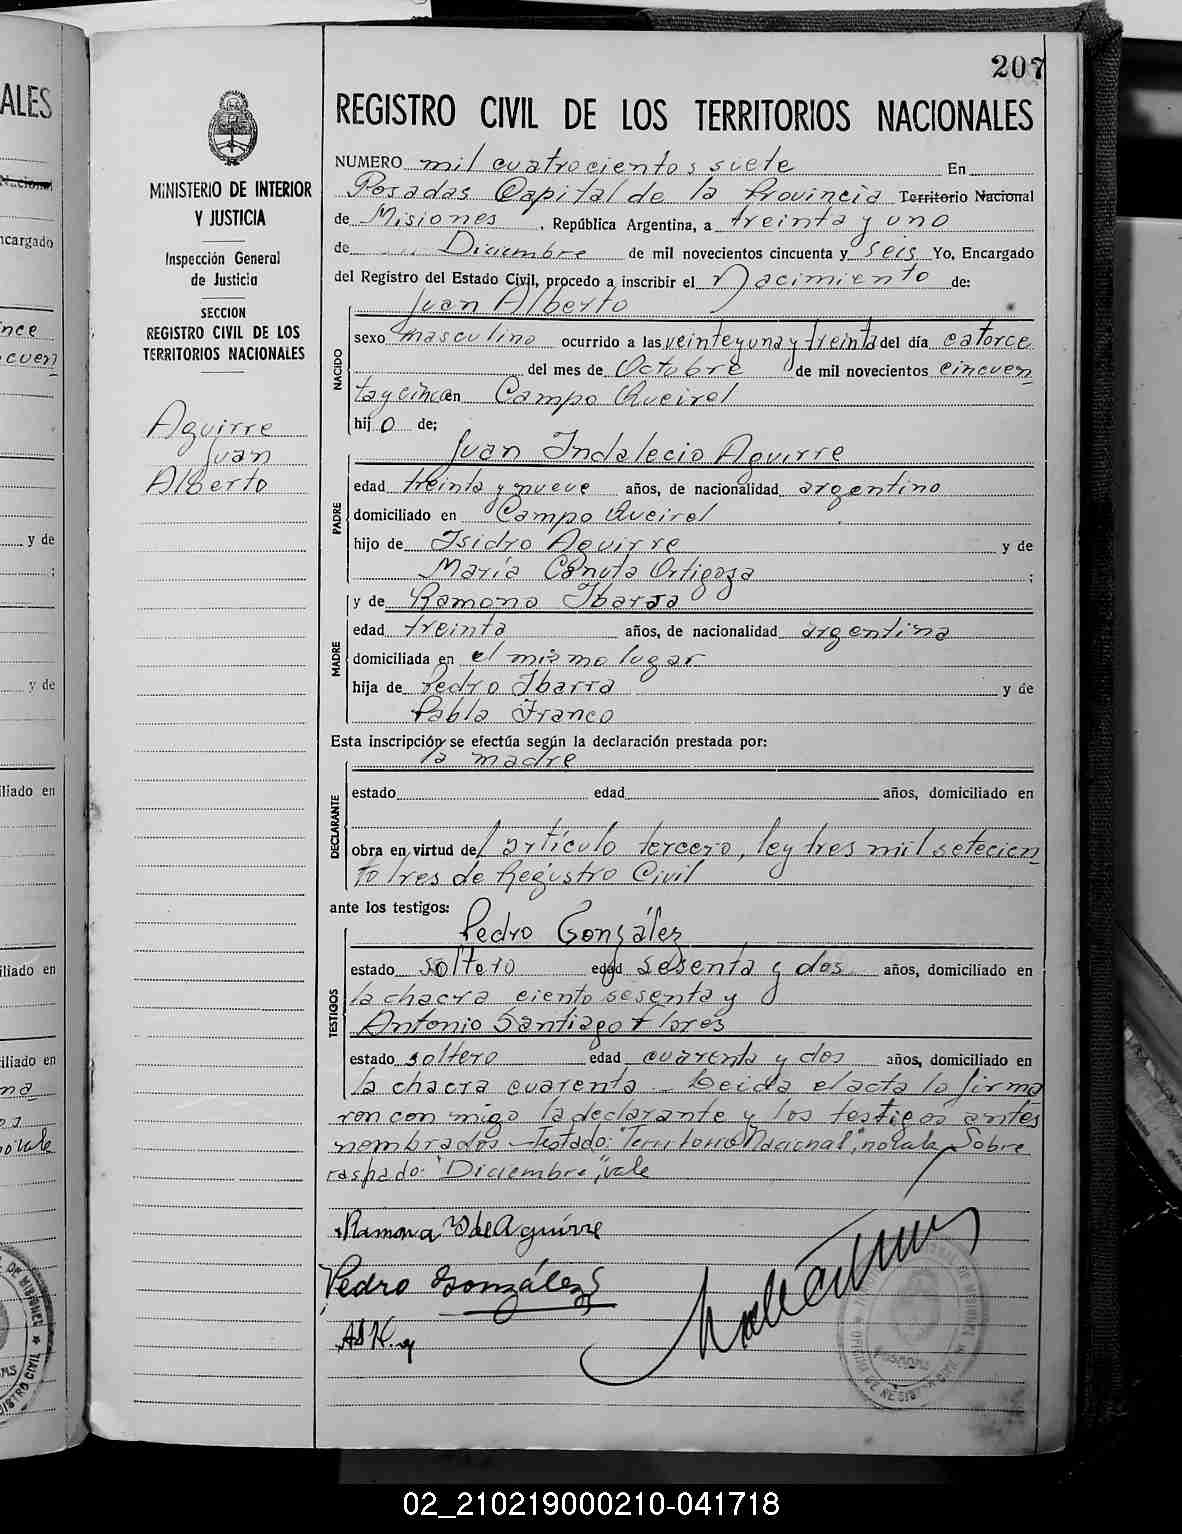 207
REGISTRO CIVIL DE LOS TERRITORIOS NACIONALES
MINISTERIO DE INTERIOR
Y JUSTICIA
Inspección General
de Justicia
SECCION
REGISTRO CIVIL DE LOS
TERRITORIOS NACIONALES
Aguirre
Juan
Alberto
NUMERO mil cuatrocientos siete En
Posadas Capital de la Provincia Territorio Nacional
de Misiones, República Argentina, a treinta y uno
de Diciembre de mil novecientos cincuenta y seis Yo, Encargado
del Registro del Estado Civil, procedo a inscribir el Nacimiento de:
Juan Alberto
NACIDO
sexo masculino ocurrido a las veinteyuna y treinta del día catorce
del mes de Octubre de mil novecientos cincuen
taycinco en Campo Queirel
hijo de;
Juan Indalecio Aguirre
PADRE
edad treinta y nueve años, de nacionalidad argentino
domiciliado en Campo Queirel
hijo de Isidro Aguirre y de
María Canuta Ortigoza ;
y de Ramona Ibarra
MADRE
edad treinta años, de nacionalidad argentina
domiciliada en el mismo lugar
hija de Pedro Ibarra y de
Pabla Franco
Esta inscripción se efectúa según la declaración prestada por:
la madre
DECLARANTE
estado edad años, domiciliado en
obra en virtud del artículo tercero, ley tres mil setecien
to tres de Registro Civil
ante los testigos:
Pedro González
TESTIGOS
estado soltero edad sesenta y dos años, domiciliado en
la chacra ciento sesenta y
Antonio Santiago Flores
estado soltero edad cuarenta y dos años, domiciliado en
la chacra cuarenta - Leida el acta la firma
ron con migo la declarante y los testigos antes
nombrados - Testado: "Territorio Nacional", no vale Sobre
raspado: "Diciembre", vale
Ramona de Aguirre
Pedro González
02_210219000210-041718